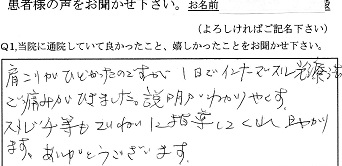 患者様の声をお聞かせ下さい。 お名前
(よろしければご記名下さい)
Q1,当院に通院していて良かったこと、嬉しかったことをお聞かせ下さい。
肩こりがひどかったのですが 1日でインナーマッスル治療法
で痛みがひきました。説明がわかりやすく
ストレッチ等もていねいに指導してくれ 助かり
ます。ありがとうございます。